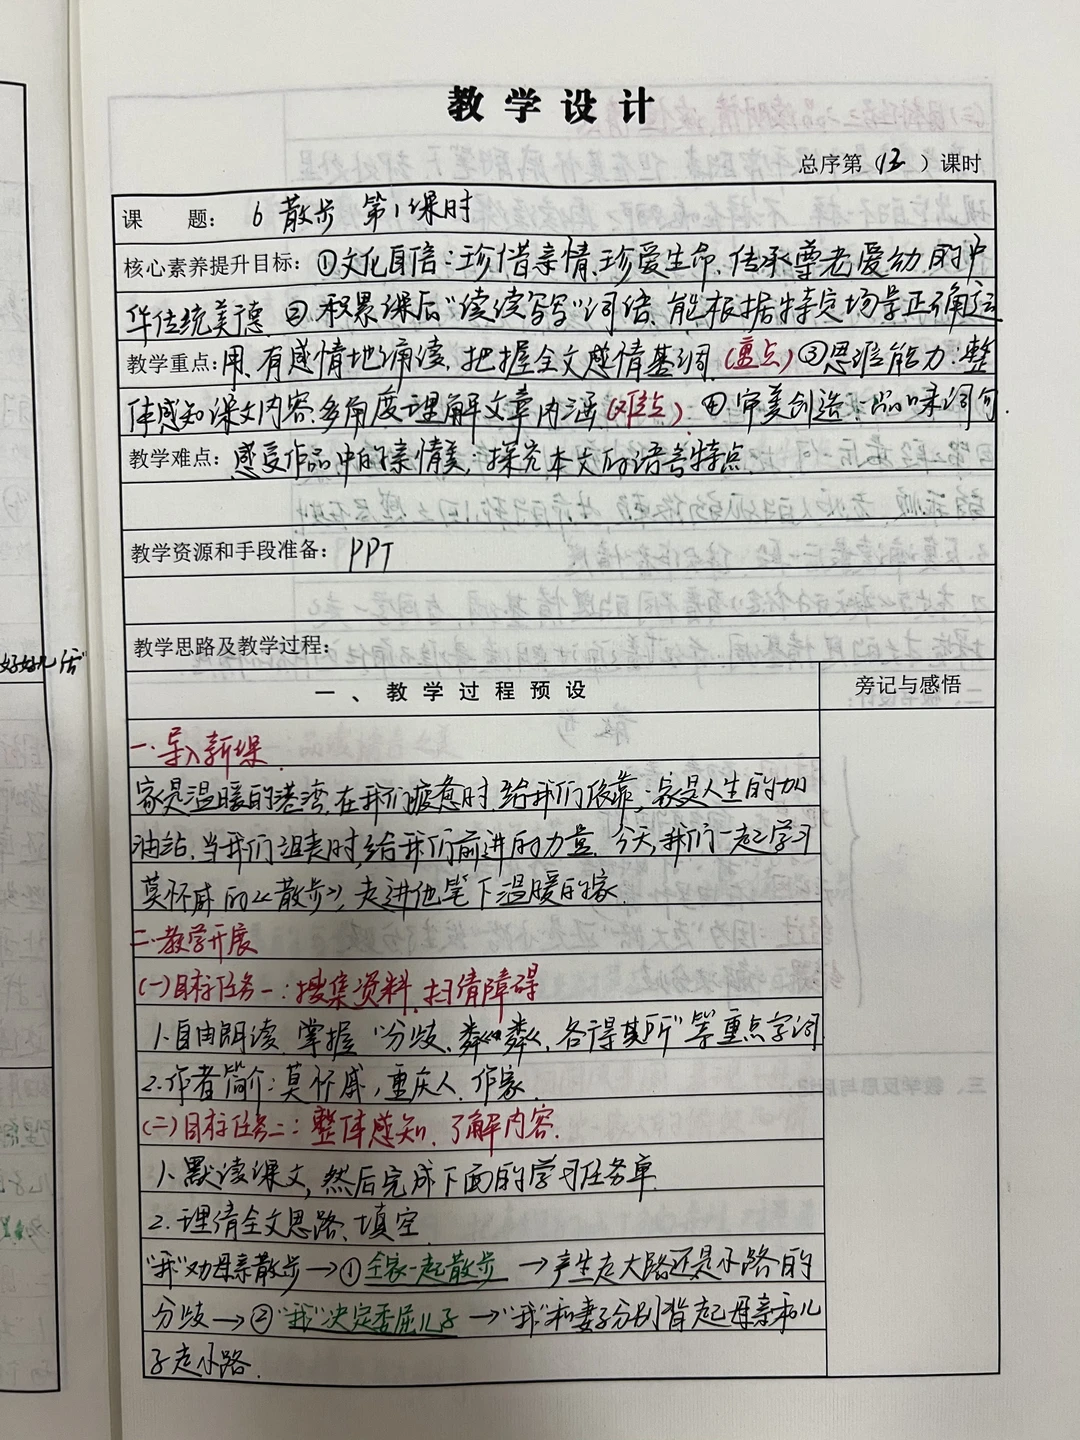 教学设计
总序第（13）课时
课 题： 6 散步 第1课时
核心素养提升目标：①文化自信：珍惜亲情、珍爱生命、传承尊老爱幼的中
华传统美德 ②.积累课后“读读写写”词语、能根据特定场景正确运
教学重点：用.有感情地诵读，把握全文感情基调（重点）③思维能力：整
体感知课文内容.多角度理解文章内涵（难点）. ④审美创造：品味词句.
教学难点：感受作品中的亲情美；探究本文的语言特点
教学资源和手段准备： PPT
教学思路及教学过程：
一、教学过程预设 旁记与感悟
好好儿活”
一.导入新课.
家是温暖的港湾,在我们疲惫时.给我们依靠；家是人生的加
油站.当我们沮丧时,给我们前进的力量. 今天,我们一起学习
莫怀戚的《散步》，走进他笔下温暖的家.
二.教学开展
(一)目标任务一：搜集资料.扫清障碍
1.自由朗读.掌握“分歧、粼粼、各得其所”等重点字词
2.作者简介：莫怀戚，重庆人.作家.
(二)目标任务二：整体感知、了解内容.
1.默读课文,然后完成下面的学习任务单.
2.理清全文思路、填空.
“我”劝母亲散步→①全家一起散步 →产生走大路还是小路的
分歧→②“我”决定委屈儿子→“我”和妻子分别背起母亲和儿
子走小路.